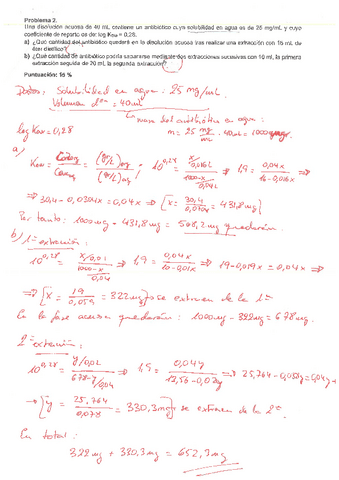 Problema 2.
Una disolución acuosa de 40 mL contiene un antibiótico cuya solubilidad en agua es de 25 mg/mL y cuyo
coeficiente de reparto es de: log Kow = 0,28.
a) ¿Qué cantidad del antibiótico quedará en la disolución acuosa tras realizar una extracción con 16 mL de
éter dietílico?
b) ¿Qué cantidad de antibiótico podría separarse mediante dos extracciones sucesivas con 10 mL la primera
extracción seguida de 20 mL la segunda extracción?
Puntuación: 15 %
Datos: Solubilidad en agua : 25 mg/mL
Volumen = 40 mL
La masa del antibiótico en agua:
log Kow = 0,28
m = 25 mg/mL · 40 mL = 1000 mg
a)
Kow = 10^0,28 = 1,9 = 0,04x
⇒ 30,4 - 0,0304x = 0,04x ⇒ [x = 30,4/0,0704 = 431,8 mg]
Por tanto: 1000 mg - 431,8 mg = 568,2 mg quedarán.
b) 1ª extracción:
10^0,28 = x/0,01 / 1000-x/0,04 ⇒ 1,9 = 0,04x / 10-0,01x ⇒ 19-0,019x = 0,04x ⇒
⇒ [x = 19/0,059 = 322 mg] se extraen de la 1ª
En la fase acuosa quedarán : 1000 mg - 322 mg = 678 mg.
2ª extracción:
10^0,28 = y/0,02 / 678-y/0,04 ⇒ 1,9 = 0,04y / 13,56-0,02y ⇒ 25,764 - 0,038y = 0,04y
⇒ [y = 25,764 = 330,3 mg] se extraen de la 2ª
En total :
322 mg + 330,3 mg = 652,3 mg